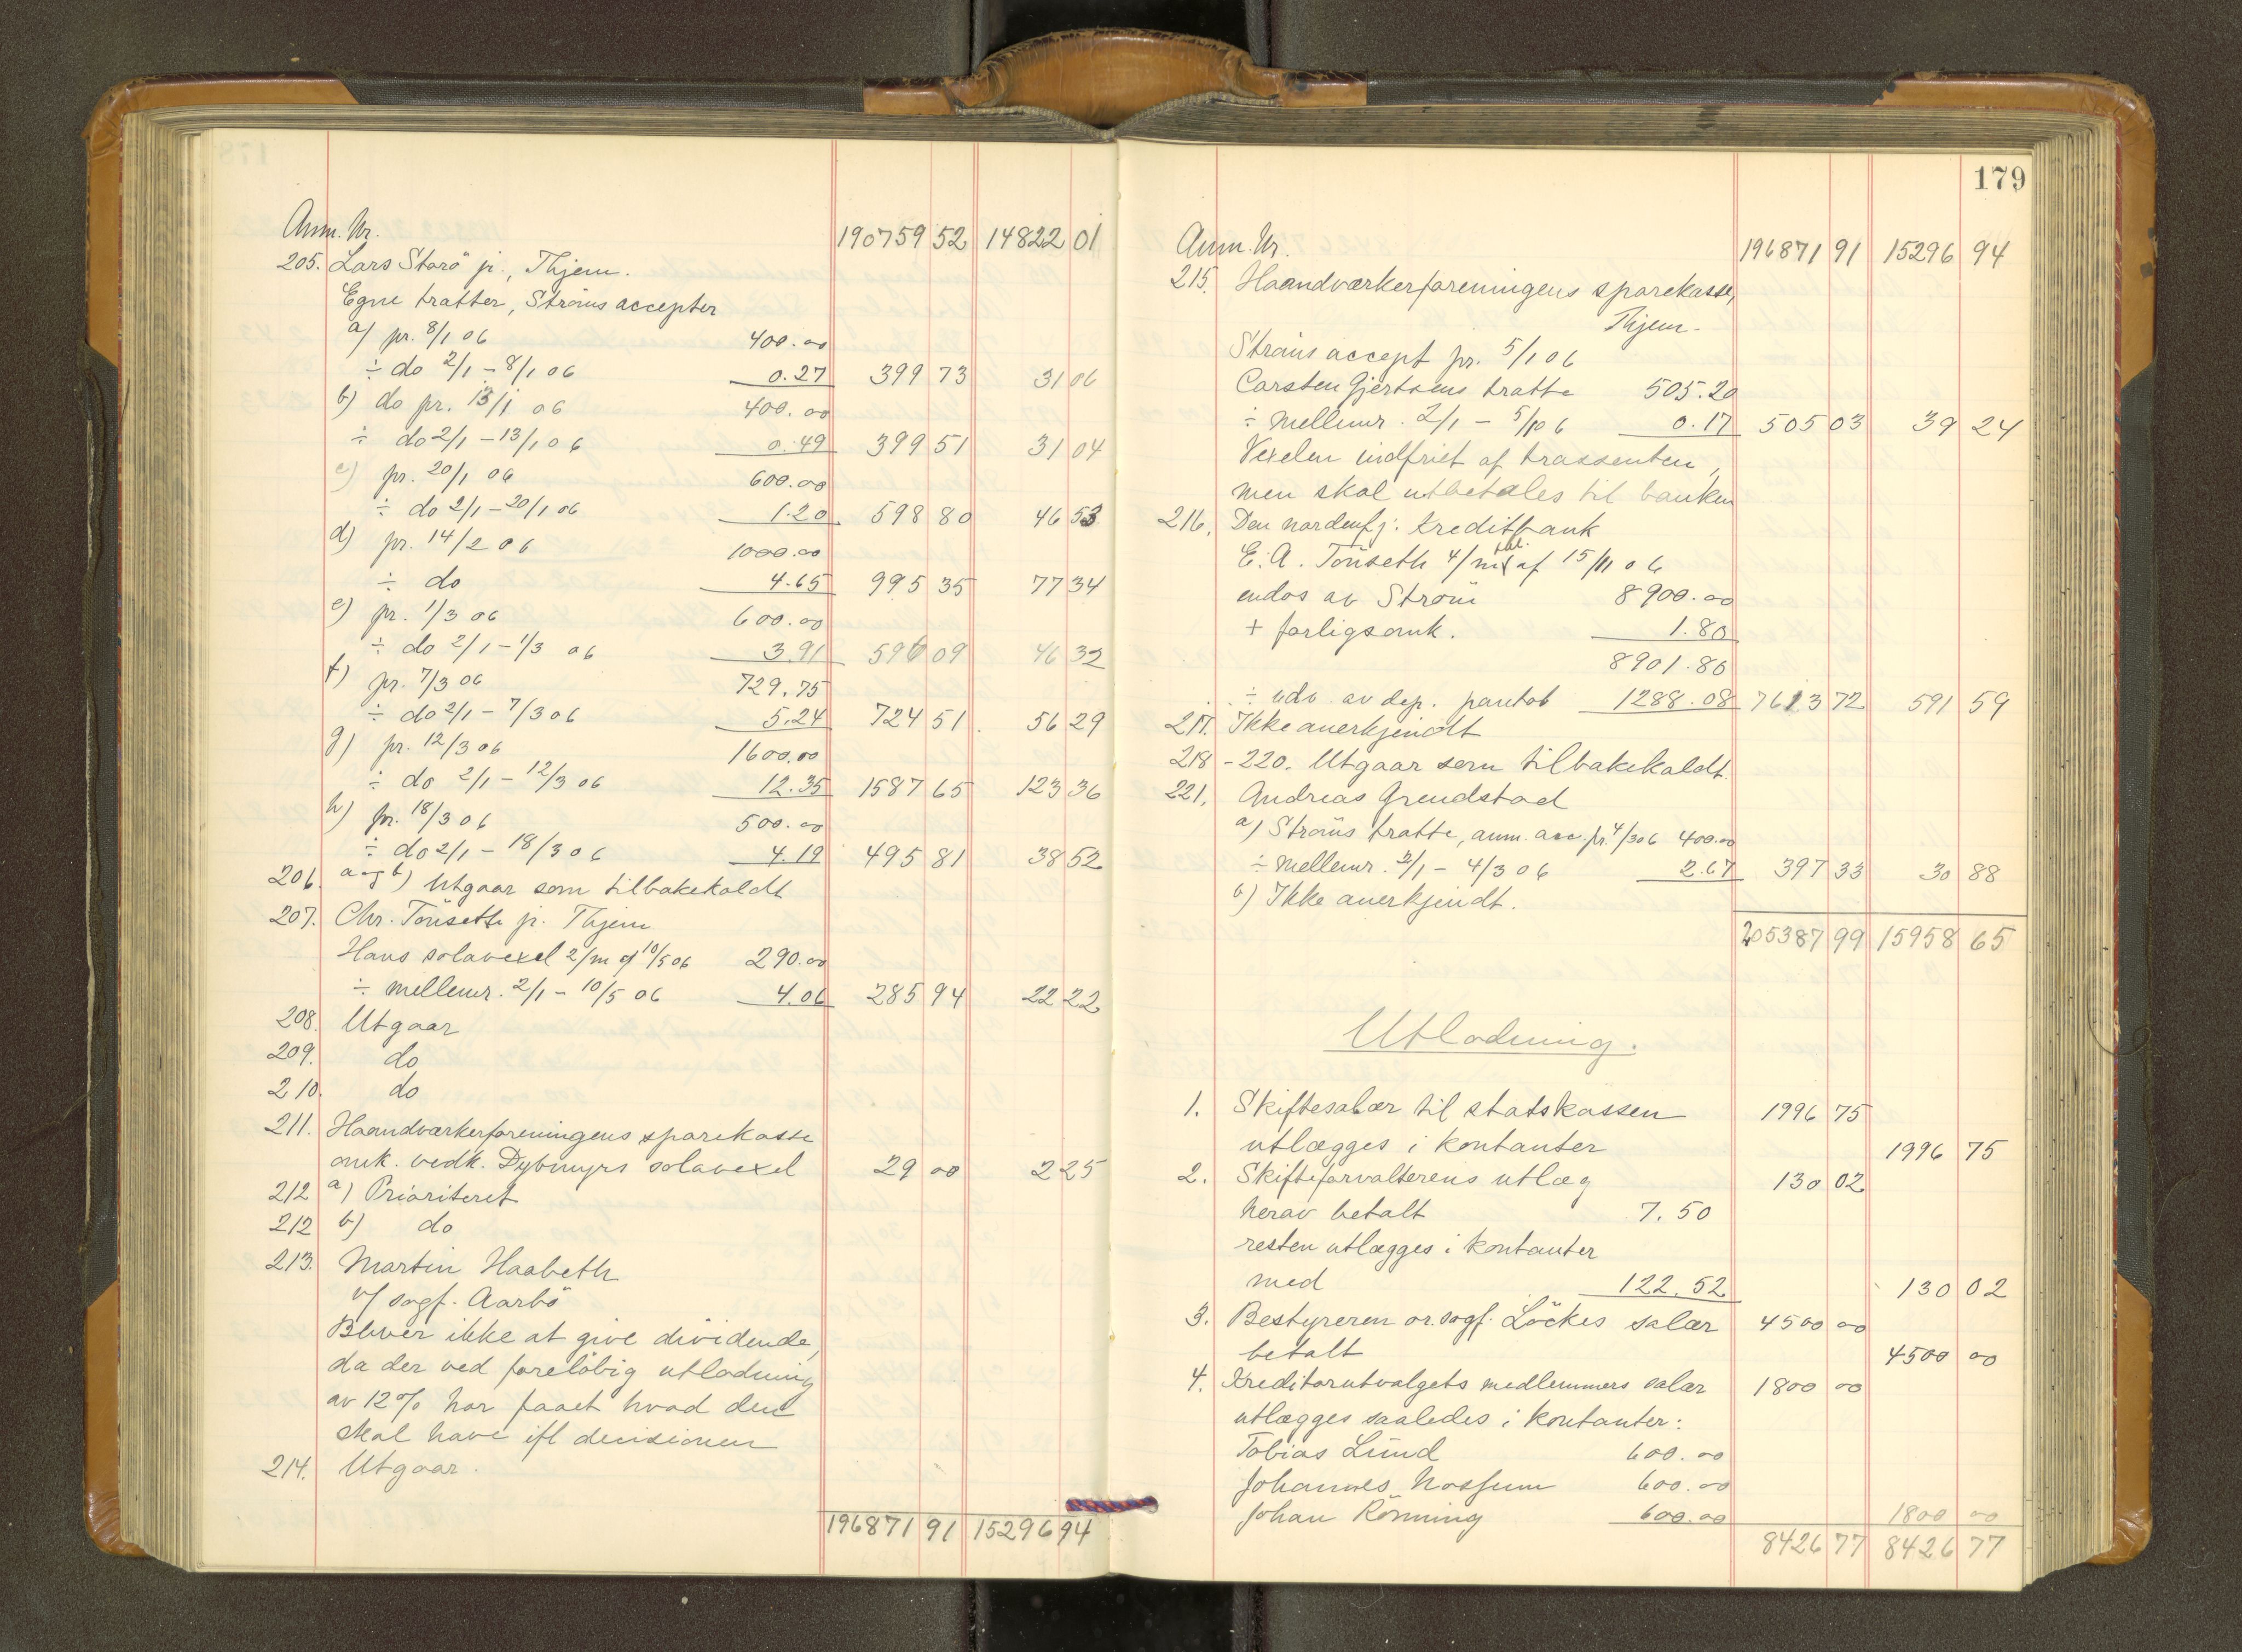 Anm. Nr. 190759 52 14822 01
205. Lars Storö jr., Thjem.
Egne tratter, Ströms accepter
a) pr. 8/1 06 400.00
÷ do 2/1 - 8/1 06 0.27 399 73 31 06
b) do pr. 13/1 06 400.00
÷ do 2/1 - 13/1 06 0.49 399 51 31 04
c) pr. 20/1 06 600.00
÷ do 2/1 - 20/1 06 1.20 598 80 46 53
d) pr. 14/2 06 1000.00
÷ do 4.65 995 35 77 34
e) pr. 1/3 06 600.00
÷ do 2/1 - 1/3 06 3.91 596 09 46 32
f) pr. 7/3 06 729.75
÷ do 2/1 - 7/3 06 5.24 724 51 56 29
g) pr. 12/3 06 1600.00
÷ do 2/1 - 12/3 06 12.35 1587 65 123 36
h) pr. 18/3 06 500.00
÷ do 2/1 - 18/3 06 4.19 495 81 38 52
206. a og b) Utgaar som tilbakekaldt
207. Chr. Tönseth jr. Thjem
Hans solavexel 2/m af 10/5 06 290.00
÷ mellemr. 2/1 - 10/5 06 4.06 285 94 22 22
208. Utgaar
209. do
210. do
211. Haandværkerforeningens sparekasse
omk. vedk. Dybmyrs solavexel 29 00 2 25
212 a) Prioriteret
212 b) do
213. Martin Haabeth
v/ sagf. Aarbö
Bliver ikke at give dividende,
da der ved foreløbig utlodning
av 12% har faaet hvad den
skal have ifl decisionen
214. Utgaar.
196871 91 15296 94
179
Anm. Nr. 196871 91 15296 94
215. Haandværkerforeningens sparekasse,
Thjem.
Ströms accept pr. 5/1 06
Carsten Gjertsens tratte 505.20
÷ mellemr. 2/1 - 5/1 06 0.17 505 03 39 24
Vexelen indfriet af trassenten,
men skal utbetales til banken
216. Den nordenfj. kreditbank
E. A. Tönseth 4/m af 15/11 06
endos av Ström 8900.00
+ forligsomk. 1.80
8901.80
÷ udv. av dep. pantob 1288.08 7613 72 591 59
217. Ikke anerkjendt
218 - 220. Utgaar som tilbakekaldt.
221. Andreas Grendstad
a) Ströms tratte, anm. acc. pr. 4/3 06 400.00
÷ mellemr. 2/1 - 4/3 06 2.67 397 33 30 88
b) Ikke anerkjendt.
205387 99 15958 65
Utlodning.
1. Skiftesalær til statskassen 1996 75
utlægges i kontanter 1996 75
2. Skifteforvalterens utlæg 130 02
herav betalt 7.50
resten utlægges i kontanter
med 122.52 130 02
3. Bestyreren or. sagf. Löckes salær 4500 00
betalt 4500 00
4. Kreditorutvalgets medlemmers salær 1800 00
utlægges saaledes i kontanter:
Tobias Lund 600.00
Johannes Mossum 600.00
Johan Rönning 600.00 1800 00
8426 77 8426 77